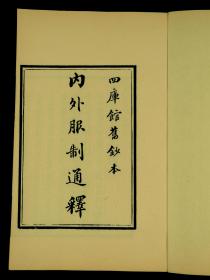 四庫館舊鈔本
內外服制通釋